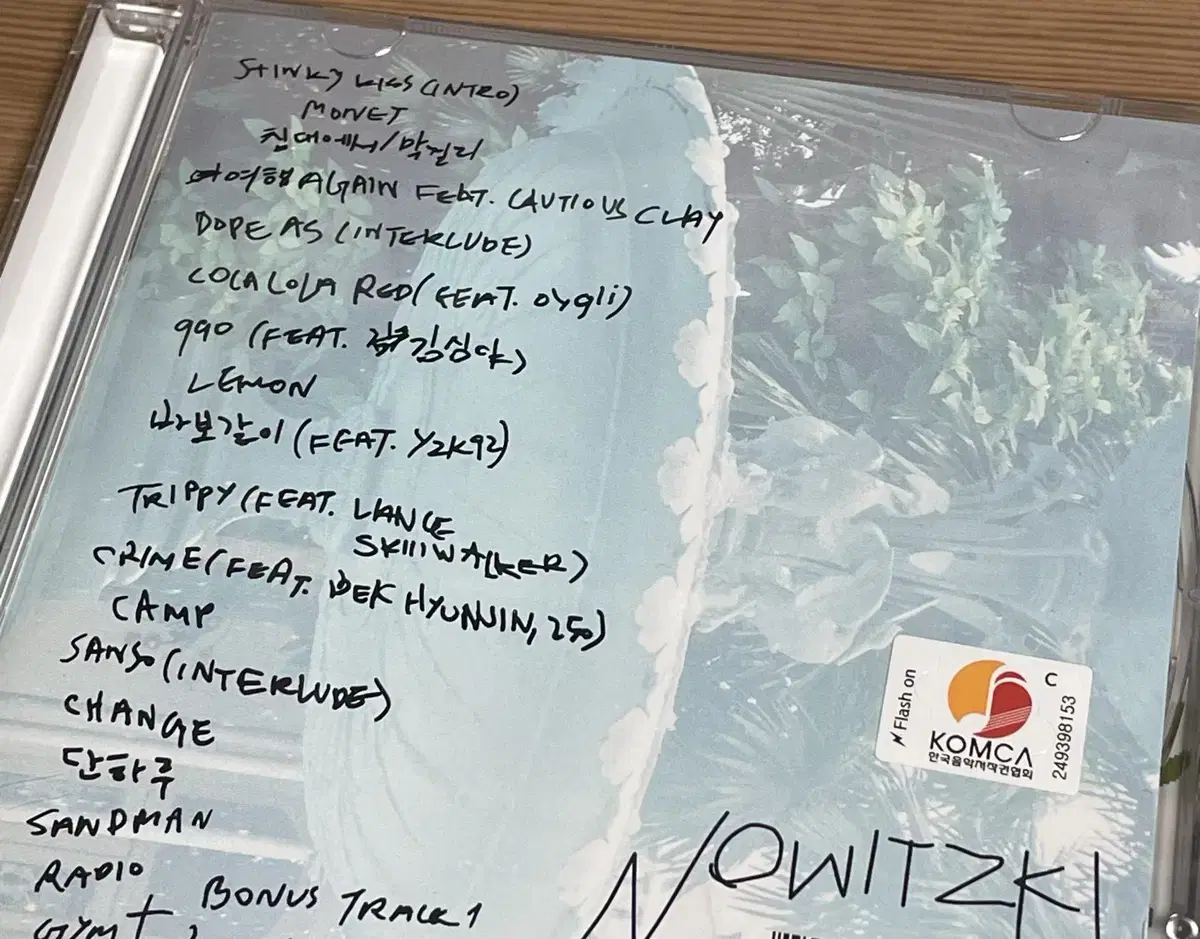 STINKY KISS (INTRO)
MONET
침대에서/막걸리
여행 AGAIN FEAT. CAUTIOUS CLAY
DOPE AS (INTERLUDE)
COCA COLA RED (FEAT. OYGLI)
990 (FEAT. 김심야)
LEMON
바보같이 (FEAT. Y2K92)
TRIPPY (FEAT. LANCE
SKIIIWALKER)
CRIME (FEAT. BEK HYUNJIN, 250)
CAMP
SANSO (INTERLUDE)
CHANGE
단하루
SANDMAN
RADIO
GYM + BONUS TRACK 1
Flash on
C
KOMCA
한국음악저작권협회
249398153
NOWITZKI